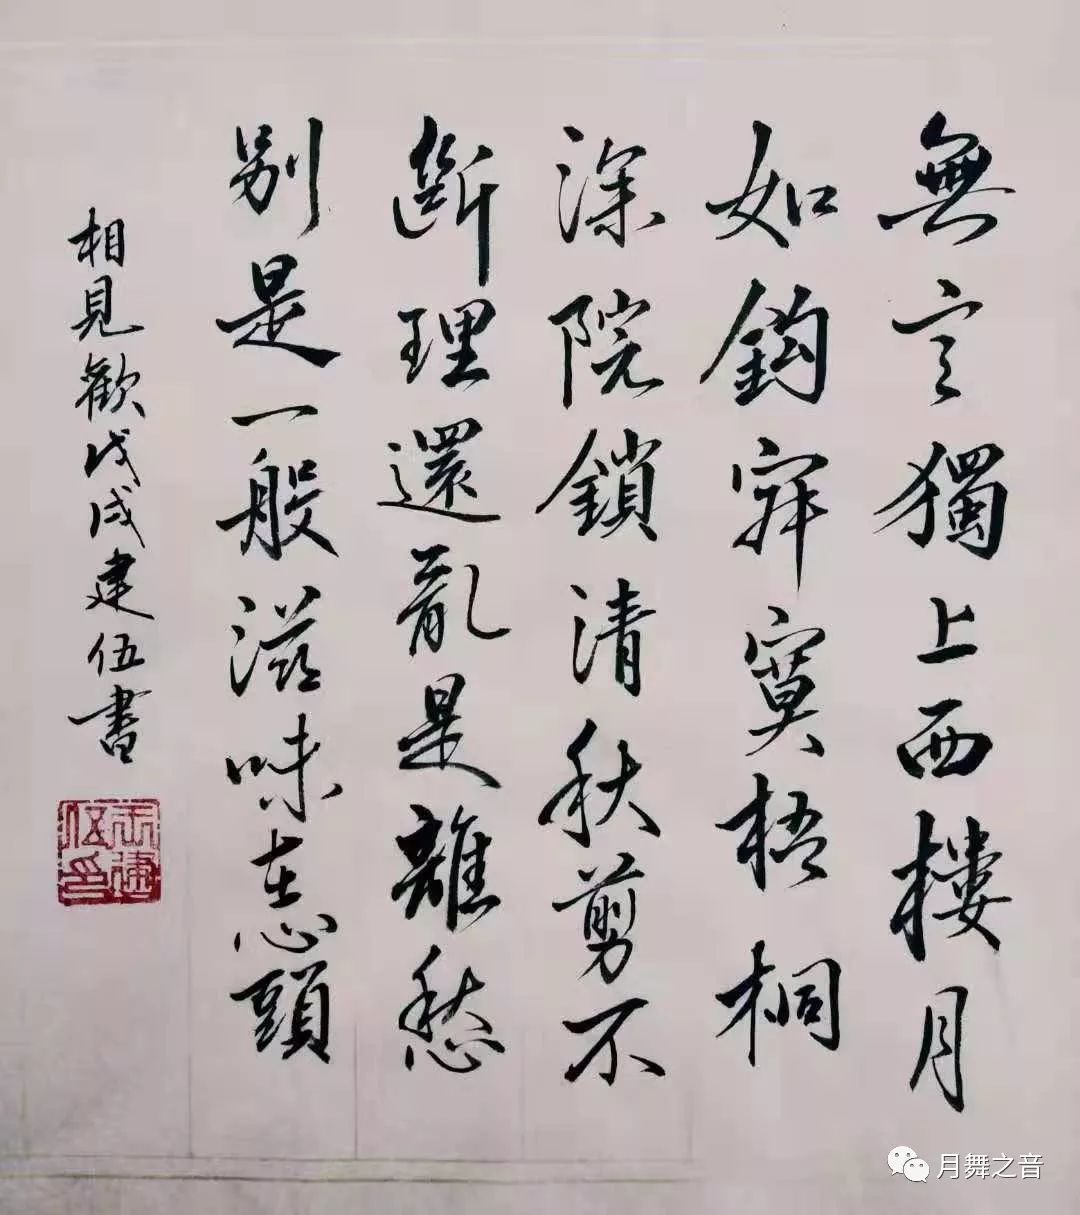 無言獨上西樓月
如鈎寂寞梧桐
深院鎖清秋剪不
斷理還亂是離愁
別是一般滋味在心頭
相見歡戊戌建伍書
月舞之音